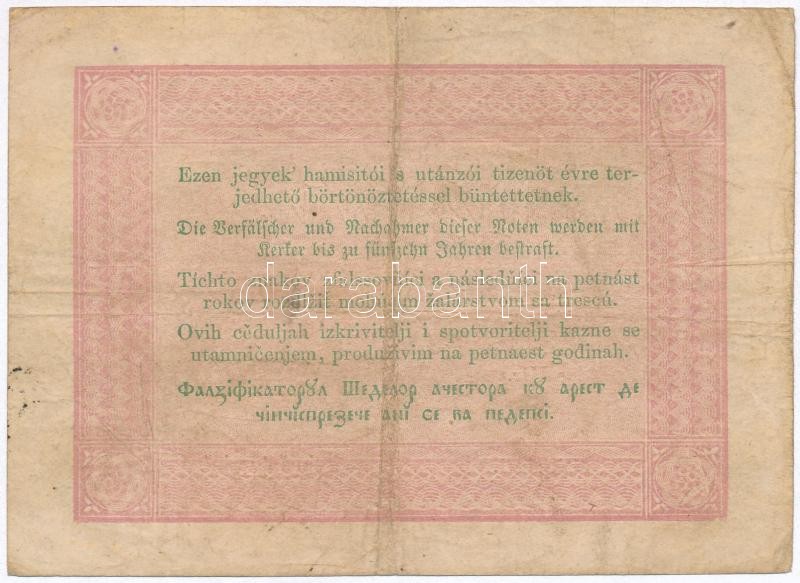 Ezen jegyek' hamisitói 's utánzói tizenöt évre ter-
jedhető börtönöztetéssel büntettetnek.
Die Verfälscher und Nachahmer dieser Noten werden mit
Kerker bis zu fünfzehn Jahren bestraft.
Tíchto a následňíci na petnást
rokov žalárstvom sa trescú.
Ovih cěduljah izkrivitelji i spotvoritelji kazne se
utamničenjem, produživim na petnaest godinah.
Фалзіфікаторꙋл Шеделор ачестора кꙋ арест де
чінчіспрезече ані се ва педепсі.
darabanth